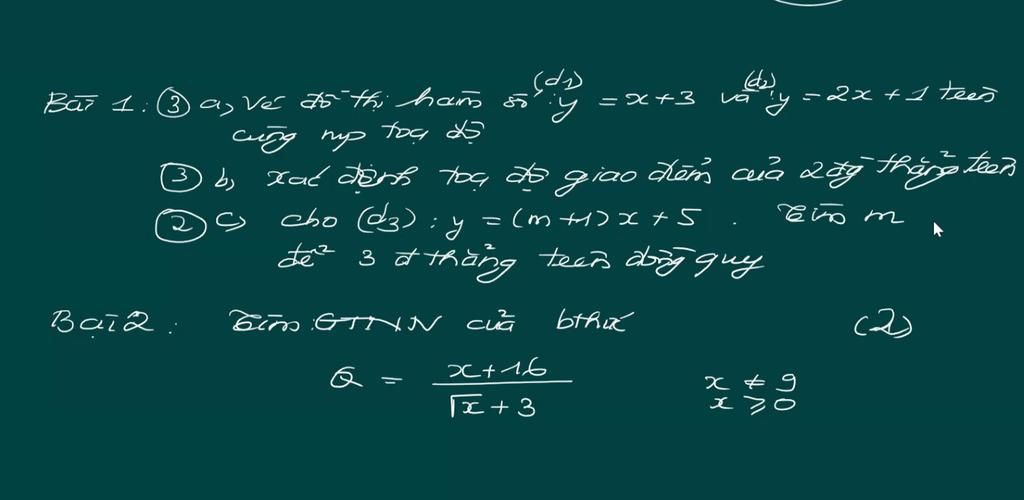 Bài 1: ③ a, Vẽ đồ thị hàm số (d1): y = x+3 và (d2): y = 2x + 1 trên
cùng mp toạ độ
③ b, xác định toạ độ giao điểm của 2 đg thẳng trên
② c, cho (d3): y = (m+1)x + 5. Tìm m
để 3 đ thẳng trên đồng quy
Bài 2: Tìm GTNN của bthức (2)
Q = \frac{x+16}{\sqrt{x}+3} x ≠ 9
x ⩾ 0